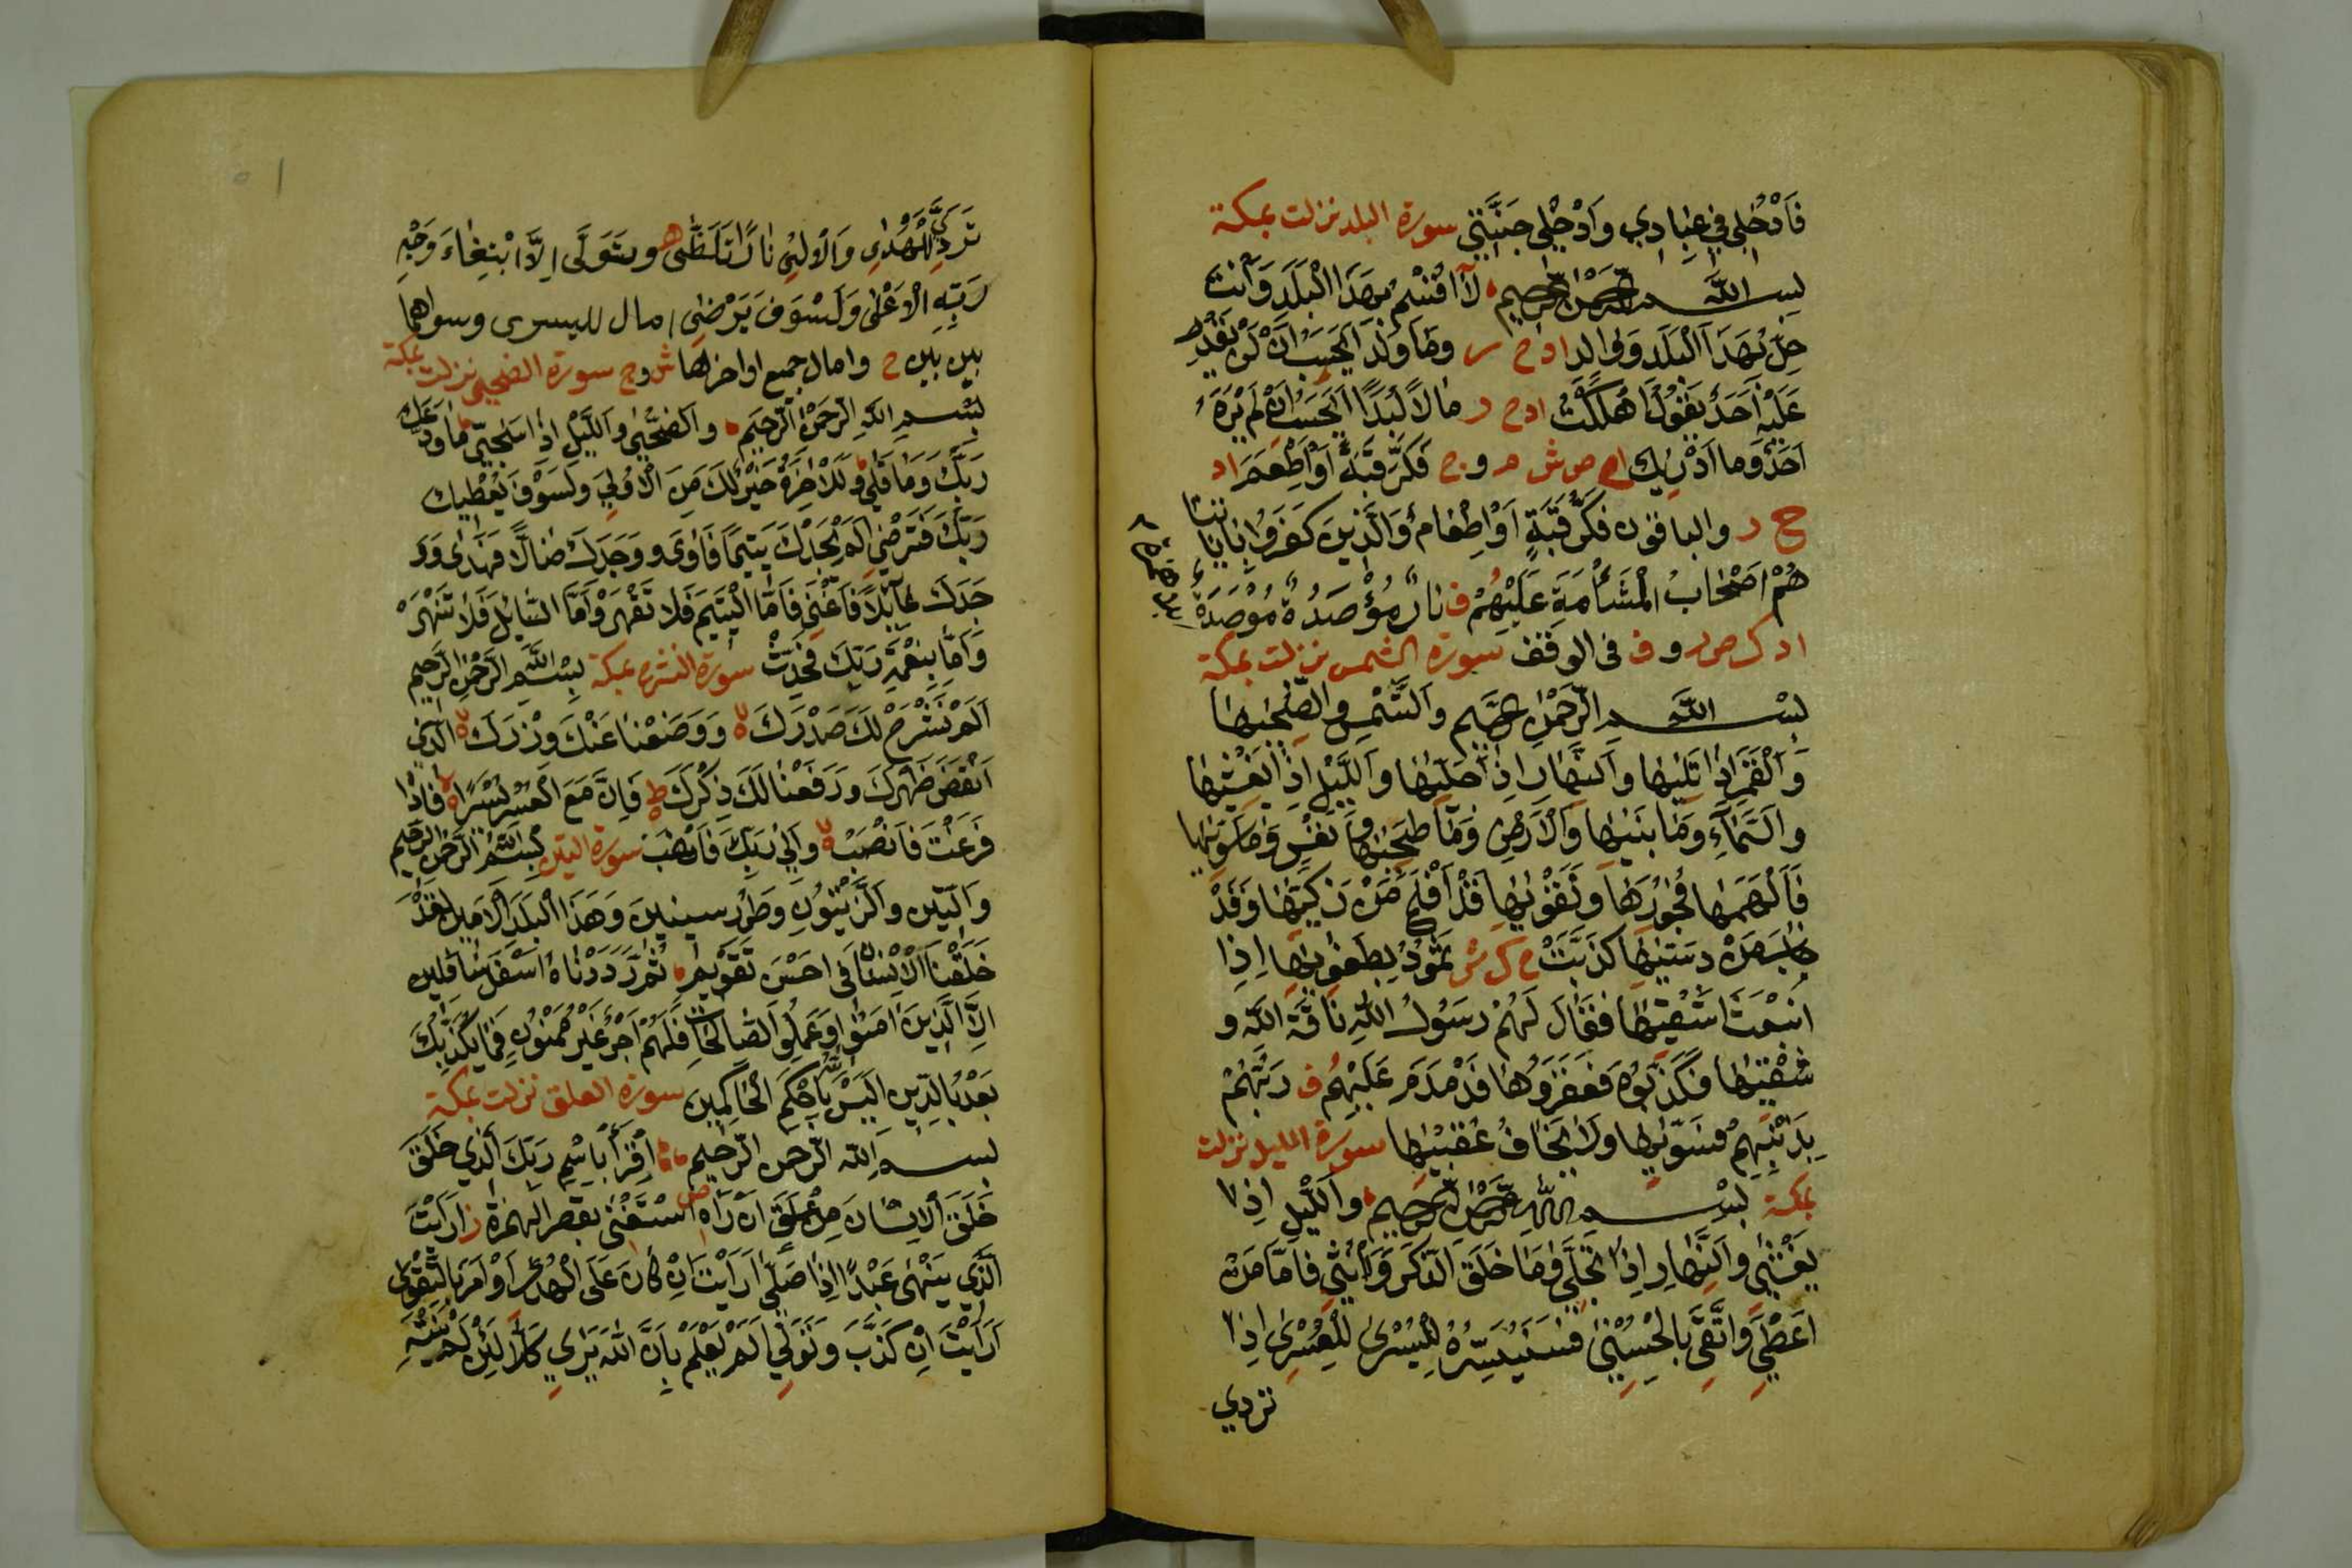 فَادْخُلِي فِي عِبَادِي وَادْخُلِي جَنَّتِي سورة البلد نزلت بمكة
بسم الله الرحمن الرحيم لَا أُقْسِمُ بِهَذَا الْبَلَدِ وَأَنْتَ
حِلٌّ بِهَذَا الْبَلَدِ وَوَالِد اد ح ر وَمَا وَلَدَ أَيَحْسَبُ أَنْ لَنْ يَقْدِرَ
عَلَيْهِ أَحَدٌ يَقُولُ أَهْلَكْتُ اد ح ر مَالًا لُبَدًا أَيَحْسَبُ أَنْ لَمْ يَرَهُ
أَحَدٌ وَمَا أَدْرَيكَ ش م و ح فَكَّ رَقَبَةً أَوْ أَطْعَمَ اد
ح ر والباقون فَكُّ رَقَبَةٍ أَوْ إِطْعَام وَالَّذِينَ كَفَرُوا بِآيَاتِنَا
هُمْ أَصْحَابُ الْمَشْأَمَةِ عَلَيْهِمْ ف نَارٌ مُؤْصَدَةٌ مُوصَدَةٌ
اد ك ص ر و ف فى الوقف سورة الشمس نزلت بمكة
بسم الله الرحمن الرحيم وَالشَّمْسِ وَضُحَيهَا
وَالْقَمَرِ إِذَا تَلَيهَا وَالنَّهَارِ إِذَا جَلَّيهَا وَاللَّيْلِ إِذَا يَغْشَيهَا
وَالسَّمَاءِ وَمَا بَنَيهَا وَالْأَرْضِ وَمَا طَحَيهَا وَنَفْسٍ وَمَا سَوَّيهَا
فَأَلْهَمَهَا فُجُورَهَا وَتَقْوَيهَا قَدْ أَفْلَحَ مَنْ زَكَّيهَا وَقَدْ
خَابَ مَنْ دَسَّيهَا كَذَّبَتْ ح ك ش ثَمُودُ بِطَغْوَيهَا إِذِ
انْبَعَثَ أَشْقَيهَا فَقَالَ لَهُمْ رَسُولُ اللَّهِ نَاقَةَ اللَّهِ وَ
سُقْيَيهَا فَكَذَّبُوهُ فَعَقَرُوهَا فَدَمْدَمَ عَلَيْهِمْ ف رَبُّهُمْ
بِذَنْبِهِمْ فَسَوَّيهَا وَلَا يَخَافُ عُقْبَيهَا سورة الليل نزلت
بمكة بسم الله الرحمن الرحيم وَاللَّيْلِ إِذَا
يَغْشَى وَالنَّهَارِ إِذَا تَجَلَّى وَمَا خَلَقَ الذَّكَرَ وَالْأُنْثَى فَأَمَّا مَنْ
أَعْطَى وَاتَّقَى بِالْحُسْنَى فَسَنُيَسِّرُهُ لِلْيُسْرَى لِلْعُسْرَى إِذَا
تردي
تَرَدَّى لَلْهُدَى وَالْأُولَى نَارًا تَلَظَّى ه وَتَوَلَّى إِلَّا ابْتِغَاءَ وَجْهِ
رَبِّهِ الْأَعْلَى وَلَسَوْفَ يَرْضَى امال لليسرى وسواهما
بين بين ح وامال جميع اواخرها ش و ج سورة الضحى نزلت بمكة
بسم الله الرحمن الرحيم وَالضُّحَى وَاللَّيْلِ إِذَا سَجَى مَا وَدَّعَكَ
رَبُّكَ وَمَا قَلَى وَلَلْآخِرَةُ خَيْرٌ لَكَ مِنَ الْأُولَى وَلَسَوْفَ يُعْطِيكَ
رَبُّكَ فَتَرْضَى أَلَمْ يَجِدْكَ يَتِيمًا فَآوَى وَوَجَدَكَ ضَالًّا فَهَدَى وَوَ
جَدَكَ عَائِلًا فَأَغْنَى فَأَمَّا الْيَتِيمَ فَلَا تَقْهَرْ وَأَمَّا السَّائِلَ فَلَا تَنْهَرْ
وَأَمَّا بِنِعْمَةِ رَبِّكَ فَحَدِّثْ سورة النشرح بمكة بسم الله الرحمن الرحيم
أَلَمْ نَشْرَحْ لَكَ صَدْرَكَ وَوَضَعْنَا عَنْكَ وِزْرَكَ الَّذِي
أَنْقَضَ ظَهْرَكَ وَرَفَعْنَا لَكَ ذِكْرَكَ ط فَإِنَّ مَعَ الْعُسْرِ يُسْرًا فَإِذَا
فَرَغْتَ فَانْصَبْ وَإِلَى رَبِّكَ فَارْغَبْ سورة التين بسم الله الرحمن الرحيم
وَالتِّينِ وَالزَّيْتُونِ وَطُورِ سِينِينَ وَهَذَا الْبَلَدِ الْأَمِينِ لَقَدْ
خَلَقْنَا الْإِنْسَانَ فِي أَحْسَنِ تَقْوِيمٍ ثُمَّ رَدَدْنَاهُ أَسْفَلَ سَافِلِينَ
إِلَّا الَّذِينَ آمَنُوا وَعَمِلُوا الصَّالِحَاتِ فَلَهُمْ أَجْرٌ غَيْرُ مَمْنُونٍ فَمَا يُكَذِّبُكَ
بَعْدُ بِالدِّينِ أَلَيْسَ اللَّهُ بِأَحْكَمِ الْحَاكِمِينَ سورة العلق نزلت بمكة
بسم الله الرحمن الرحيم اقْرَأْ بِاسْمِ رَبِّكَ الَّذِي خَلَقَ
خَلَقَ الْإِنْسَانَ مِنْ عَلَقٍ أَنْ رَآهُ اسْتَغْنَى بقصر الهمزة ز أَرَأَيْتَ
الَّذِي يَنْهَى عَبْدًا إِذَا صَلَّى أَرَأَيْتَ إِنْ كَانَ عَلَى الْهُدَى أَوْ أَمَرَ بِالتَّقْوَى
أَرَأَيْتَ إِنْ كَذَّبَ وَتَوَلَّى أَلَمْ يَعْلَمْ بِأَنَّ اللَّهَ يَرَى كَلَّا لَئِنْ لَمْ يَنْتَهِ